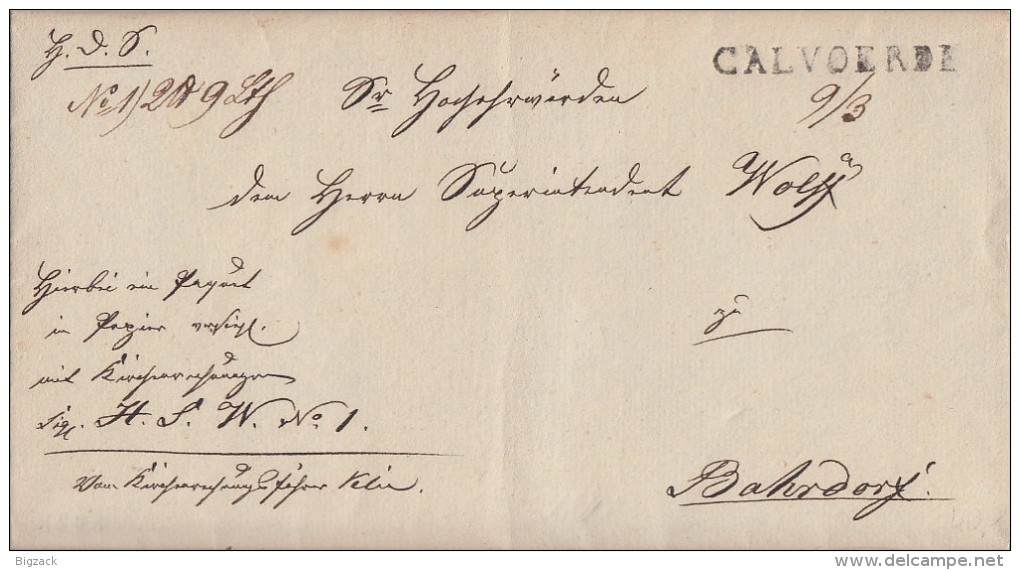 H. d. S.
CALVOERDE
No 1) 2 9 Lth
Sr Hochehrwürden
9/3
dem Herrn Superintendent Wolff
Hierbei ein Paquet
in Papier
mit Kirchenrechnungen
sig. H. S. W. No 1.
zu
Vom Kirchenrechnungsführer
Bahrdorf.
Bigzack
delcampe.net